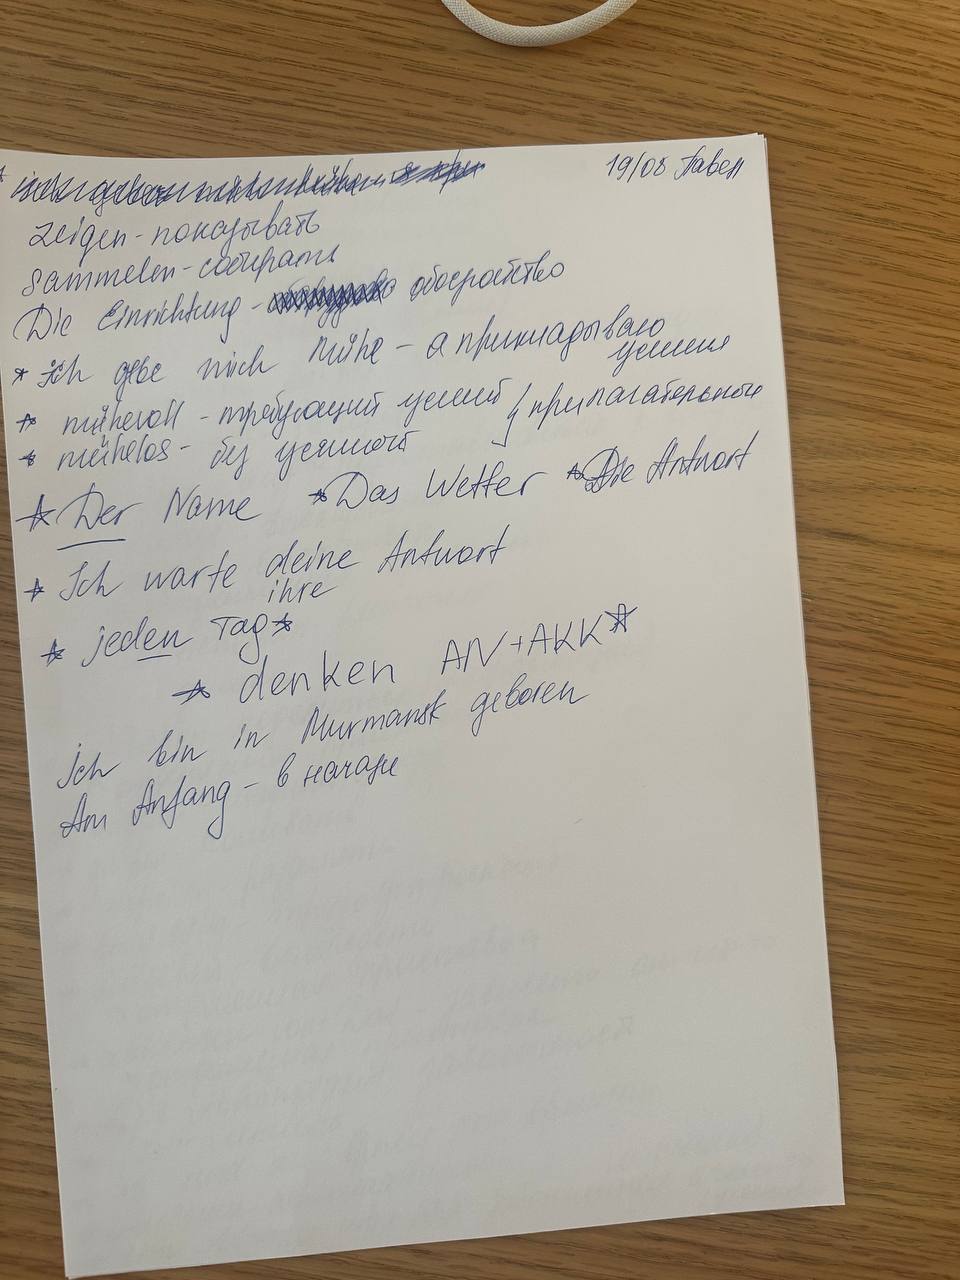 19/08 Павел
zeigen - показывать
sammelen - собирать
Die Einrichtung - обостройство
* ich gebe mich Mühe - я прикладываю
усилия
* mühevoll - требующий усилий } прилагательное
* mühelos - без усилий
* Der Name * Das Wetter * Die Antwort
* Ich warte deine Antwort
ihre
* jeden Tag *
* denken AN+AKK *
ich bin in Murmansk geboren
Am Anfang - в начале